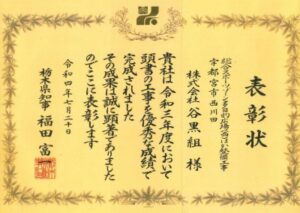 表彰状
総合スポーツゾーン多目的広場西ほか整備工事
宇都宮市西川田
株式会社谷黒組 様
貴社は令和三年度において
頭書の工事を優秀な成績で
完成されました
その成果は誠に顕著でありました
のでここに表彰します
令和四年七月二十日
栃木県知事 福田富一